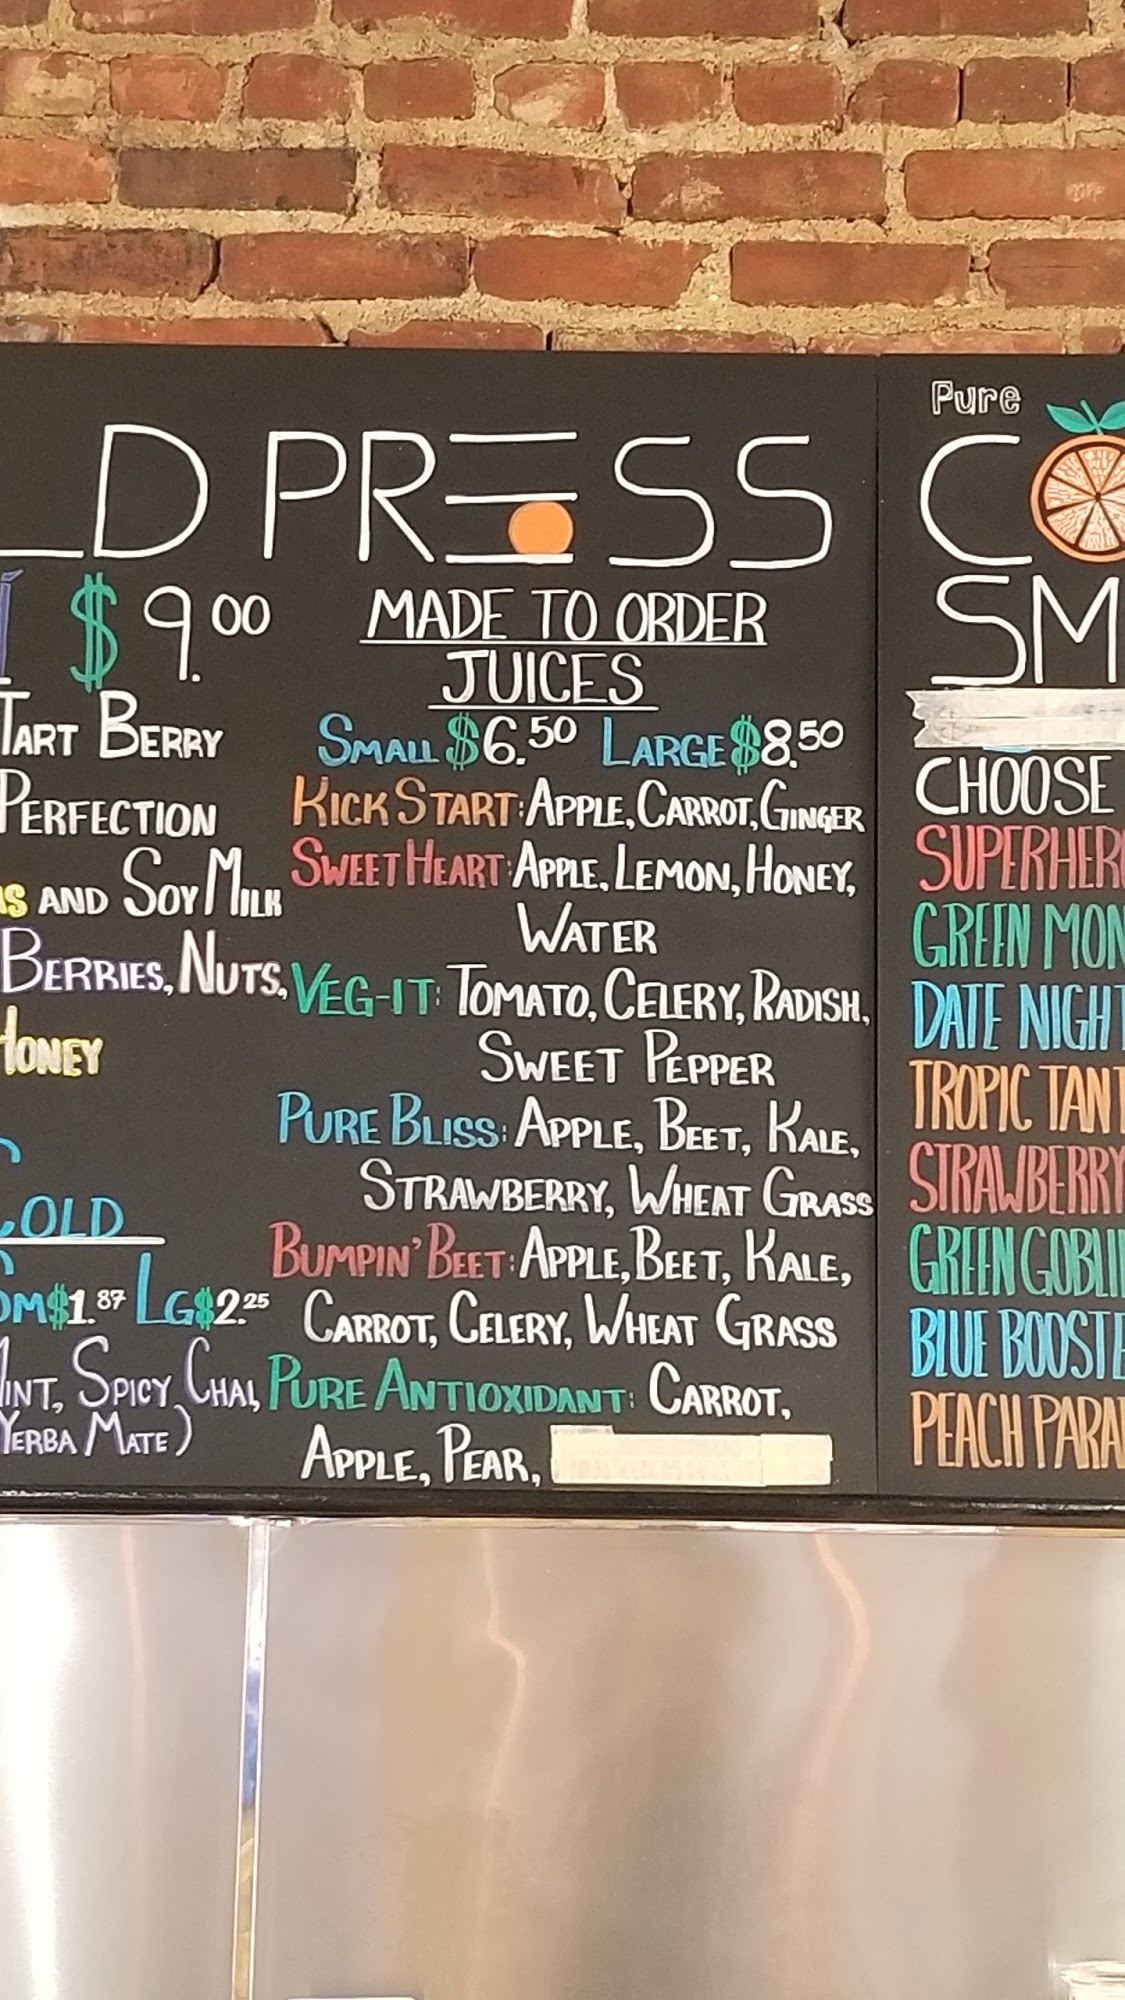 PRESS
$9.00
TART BERRY
PERFECTION
AND SOY MILK
BERRIES, NUTS,
HONEY
COLD
$1.87 LG $2.25
SPICY CHAI,
YERBA MATE)
MADE TO ORDER
JUICES
SMALL $6.50 LARGE $8.50
KICK START: APPLE, CARROT, GINGER
SWEET HEART: APPLE, LEMON, HONEY,
WATER
VEG-IT: TOMATO, CELERY, RADISH,
SWEET PEPPER
PURE BLISS: APPLE, BEET, KALE,
STRAWBERRY, WHEAT GRASS
BUMPIN' BEET: APPLE, BEET, KALE,
CARROT, CELERY, WHEAT GRASS
PURE ANTIOXIDANT: CARROT,
APPLE, PEAR,
Pure
CHOOSE
SUPERHER
GREEN MON
DATE NIGHT
TROPIC TAN
STRAWBERRY
GREEN GOBLI
BLUE BOOSTE
PEACH PARA